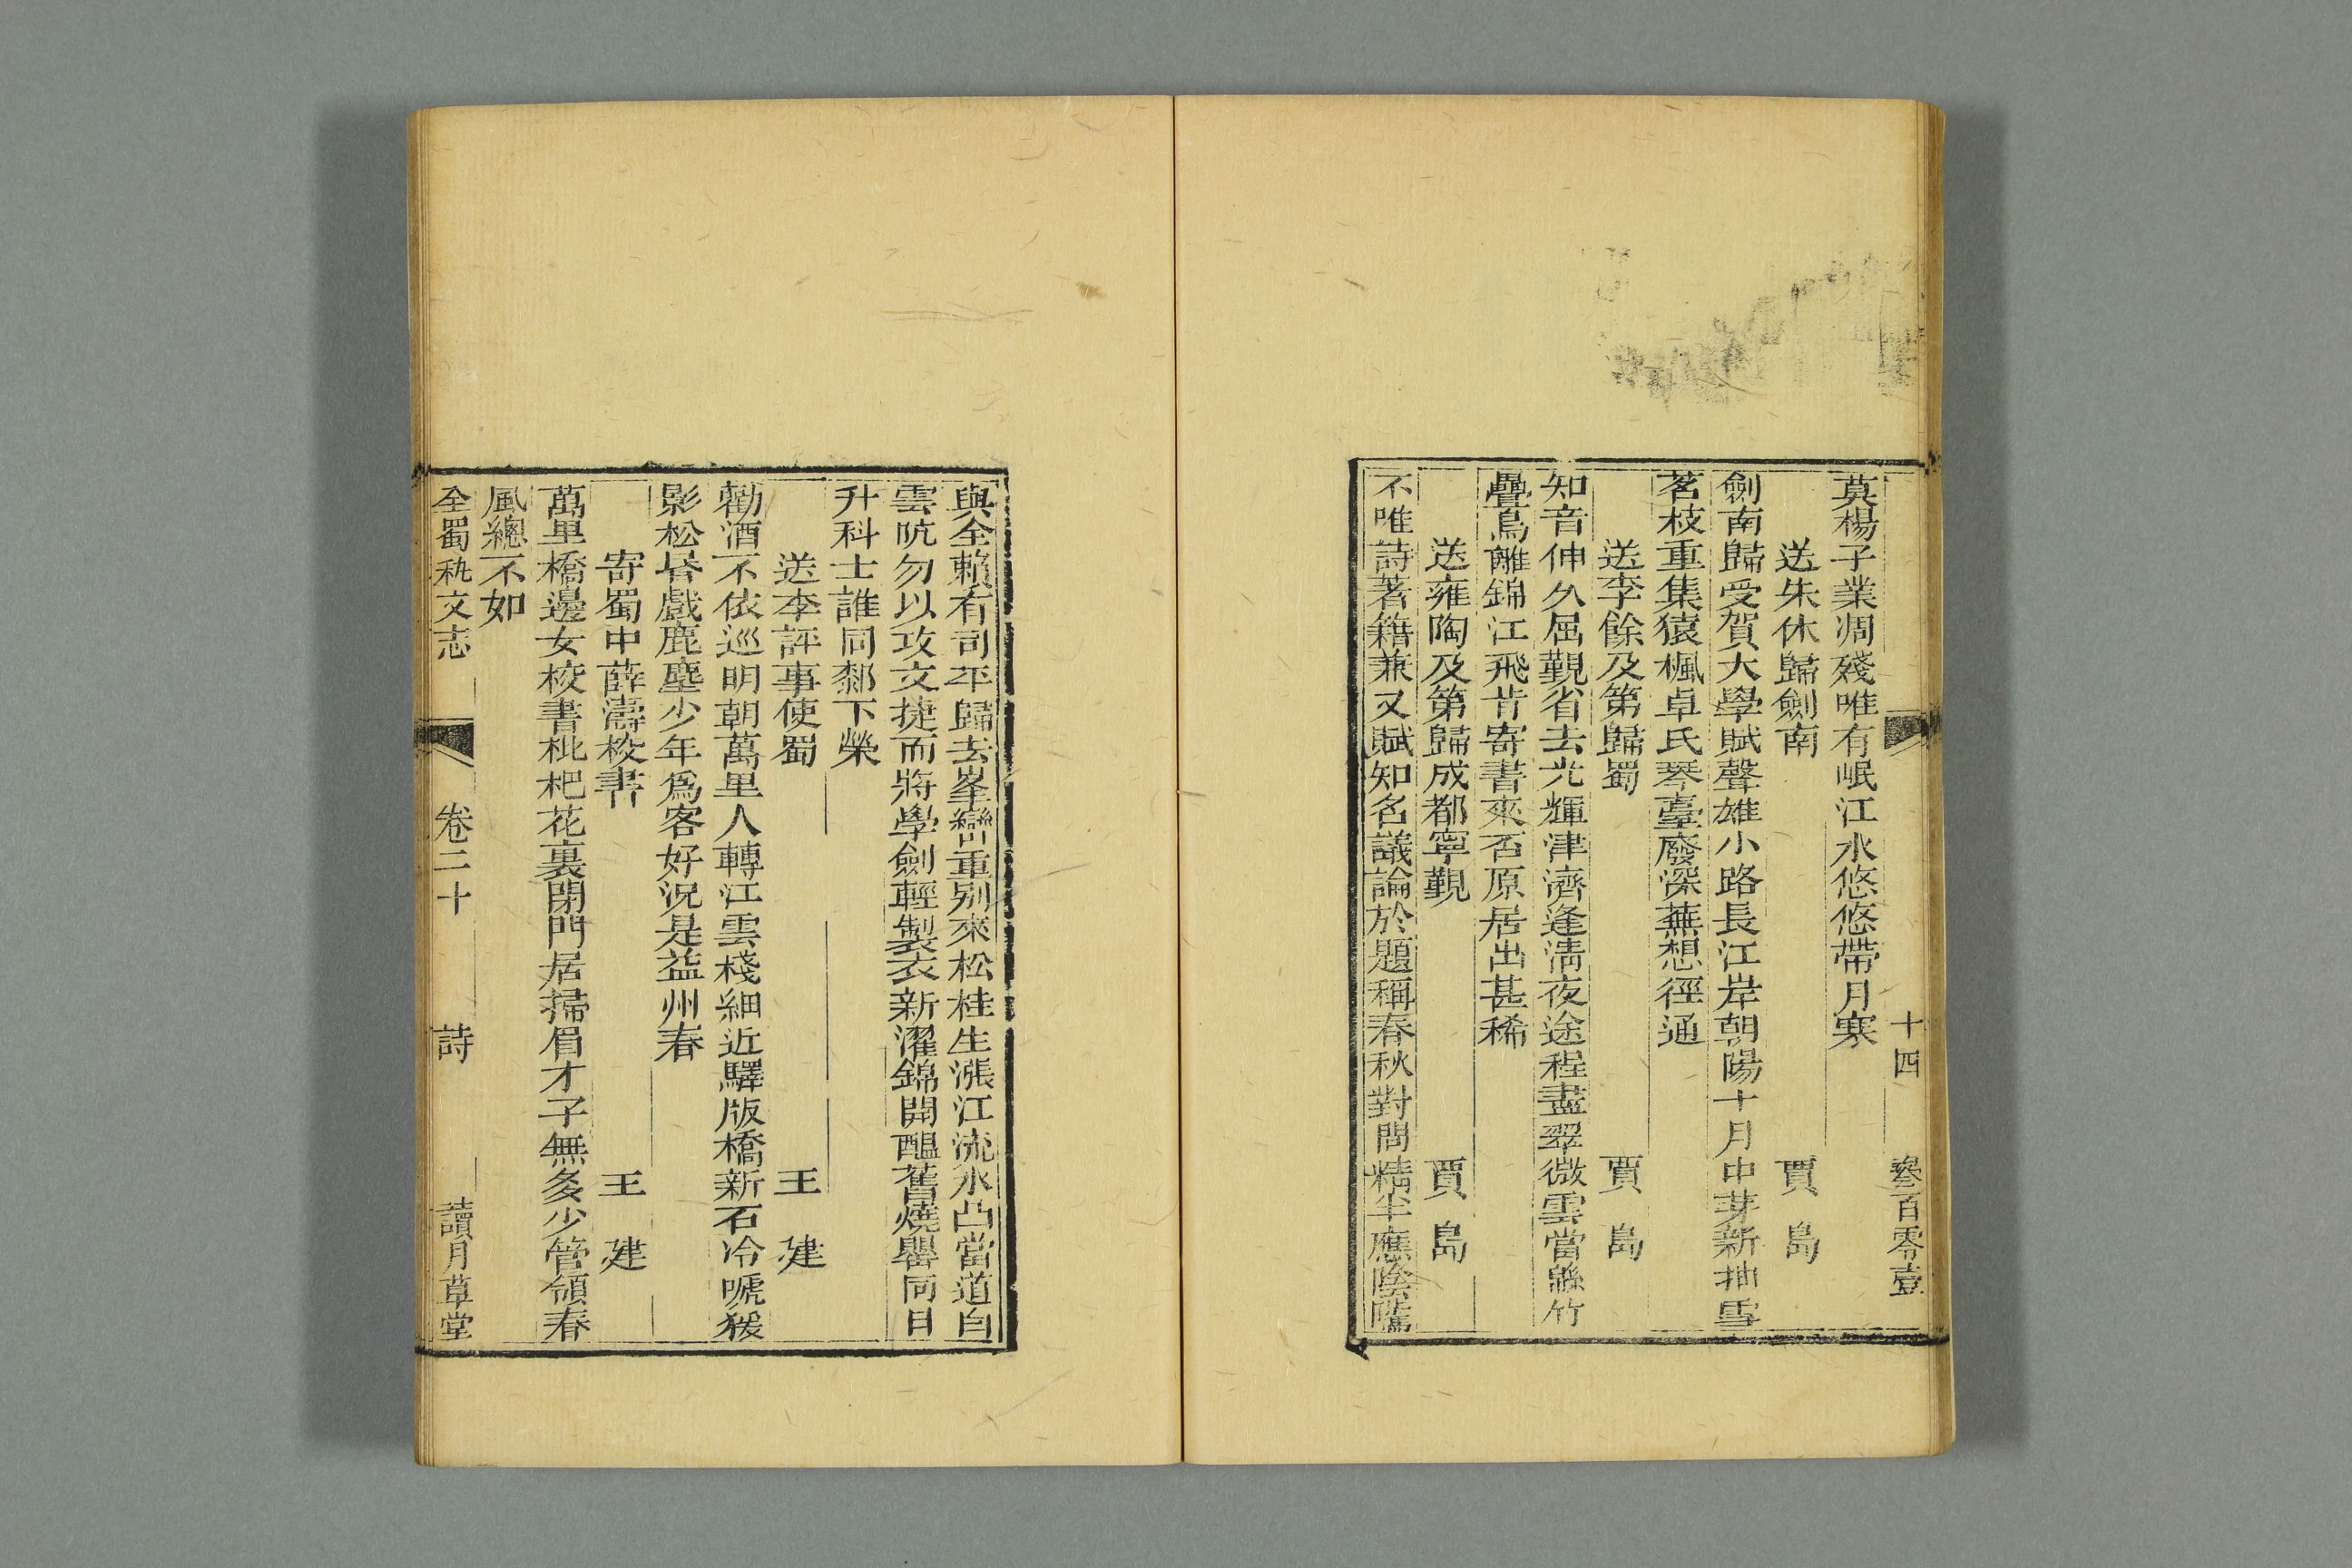 十四 叅百零壹
莫楊子業凋殘唯有岷江水悠悠帶月寒
送朱休歸劍南 賈島
劍南歸受賀大學賦聲雄小路長江岸朝陽十月中芽新抽雪
茗枝重集猿楓卓氏琴臺廢深蕪想徑通
送李餘及第歸蜀 賈島
知音伸久屈覲省去光輝津濟逢清夜途程盡翠微雲當緜竹
疊鳥離錦江飛肯寄書來否原居出甚稀
送雍陶及第歸成都寧覲 賈島
不唯詩著籍兼又賦知名議論於題稱春秋對問精半應陰騭
與全賴有司平歸去峯巒重别來松桂生漲江流水凸當道白
雲阬勿以攻文捷而將學劍輕製衣新濯錦開醖舊燒罌同日
升科士誰同郄下榮
送李評事使蜀 王建
勸酒不依巡明朝萬里人轉江雲棧細近驛版橋新石冷嗁猨
影松昏戲鹿塵少年爲客好況是益州春
寄蜀中薛濤校書 王建
萬里橋邊女校書枇杷花裏閉門居掃眉才子無多少管領春
風總不如
全蜀秇文志 卷二十 詩 讀月草堂